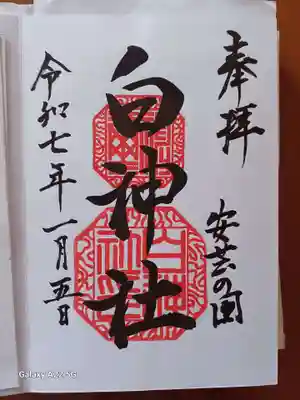 奉拝
安芸の国
白神社
令和七年一月五日